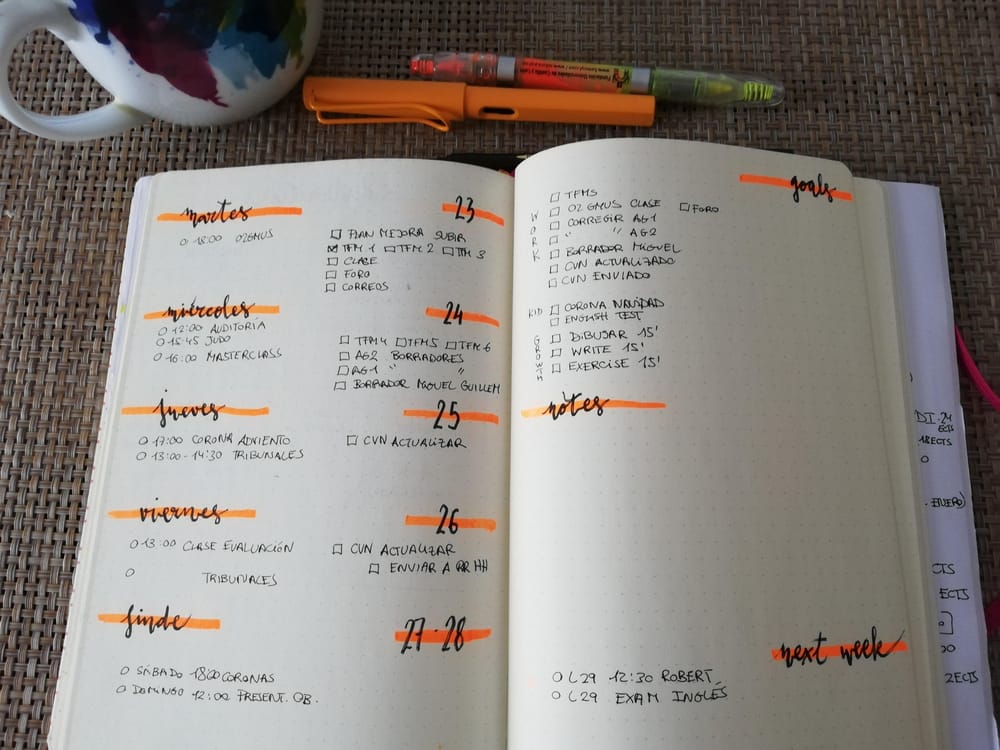 martes 23
18:00 02GMUS
PLAN MEJORA SUBIR
TFM 1 TFM 2 TFM 3
CLASE
FORO
CORREOS
miércoles 24
12:00 AUDITORÍA
15:45 JUDO
16:00 MASTERCLASS
TFM 4 TFM 5 TFM 6
AG2 BORRADORES
AG1 " "
BORRADOR MIGUEL GUILLEM
jueves 25
17:00 CORONA ADVIENTO
13:00 - 14:30 TRIBUNALES
CVN ACTUALIZAR
viernes 26
13:00 CLASE EVALUACIÓN
TRIBUNALES
CVN ACTUALIZAR
ENVIAR A RRHH
finde 27-28
SÁBADO 18:00 CORONAS
DOMINGO 12:00 PRESENT. OB.
goals
WORK
TFMS
02 GMUS CLASE FORO
CORREGIR AG1
" " AG2
BORRADOR MIGUEL
CVN ACTUALIZADO
CVN ENVIADO
KID
CORONA NAVIDAD
ENGLISH TEST
GROWTH
DIBUJAR 15'
WRITE 15'
EXERCISE 15'
notes
next week
L29 12:30 ROBERT
L29 EXAM INGLÉS
ECTS
ENERO)
ECTS